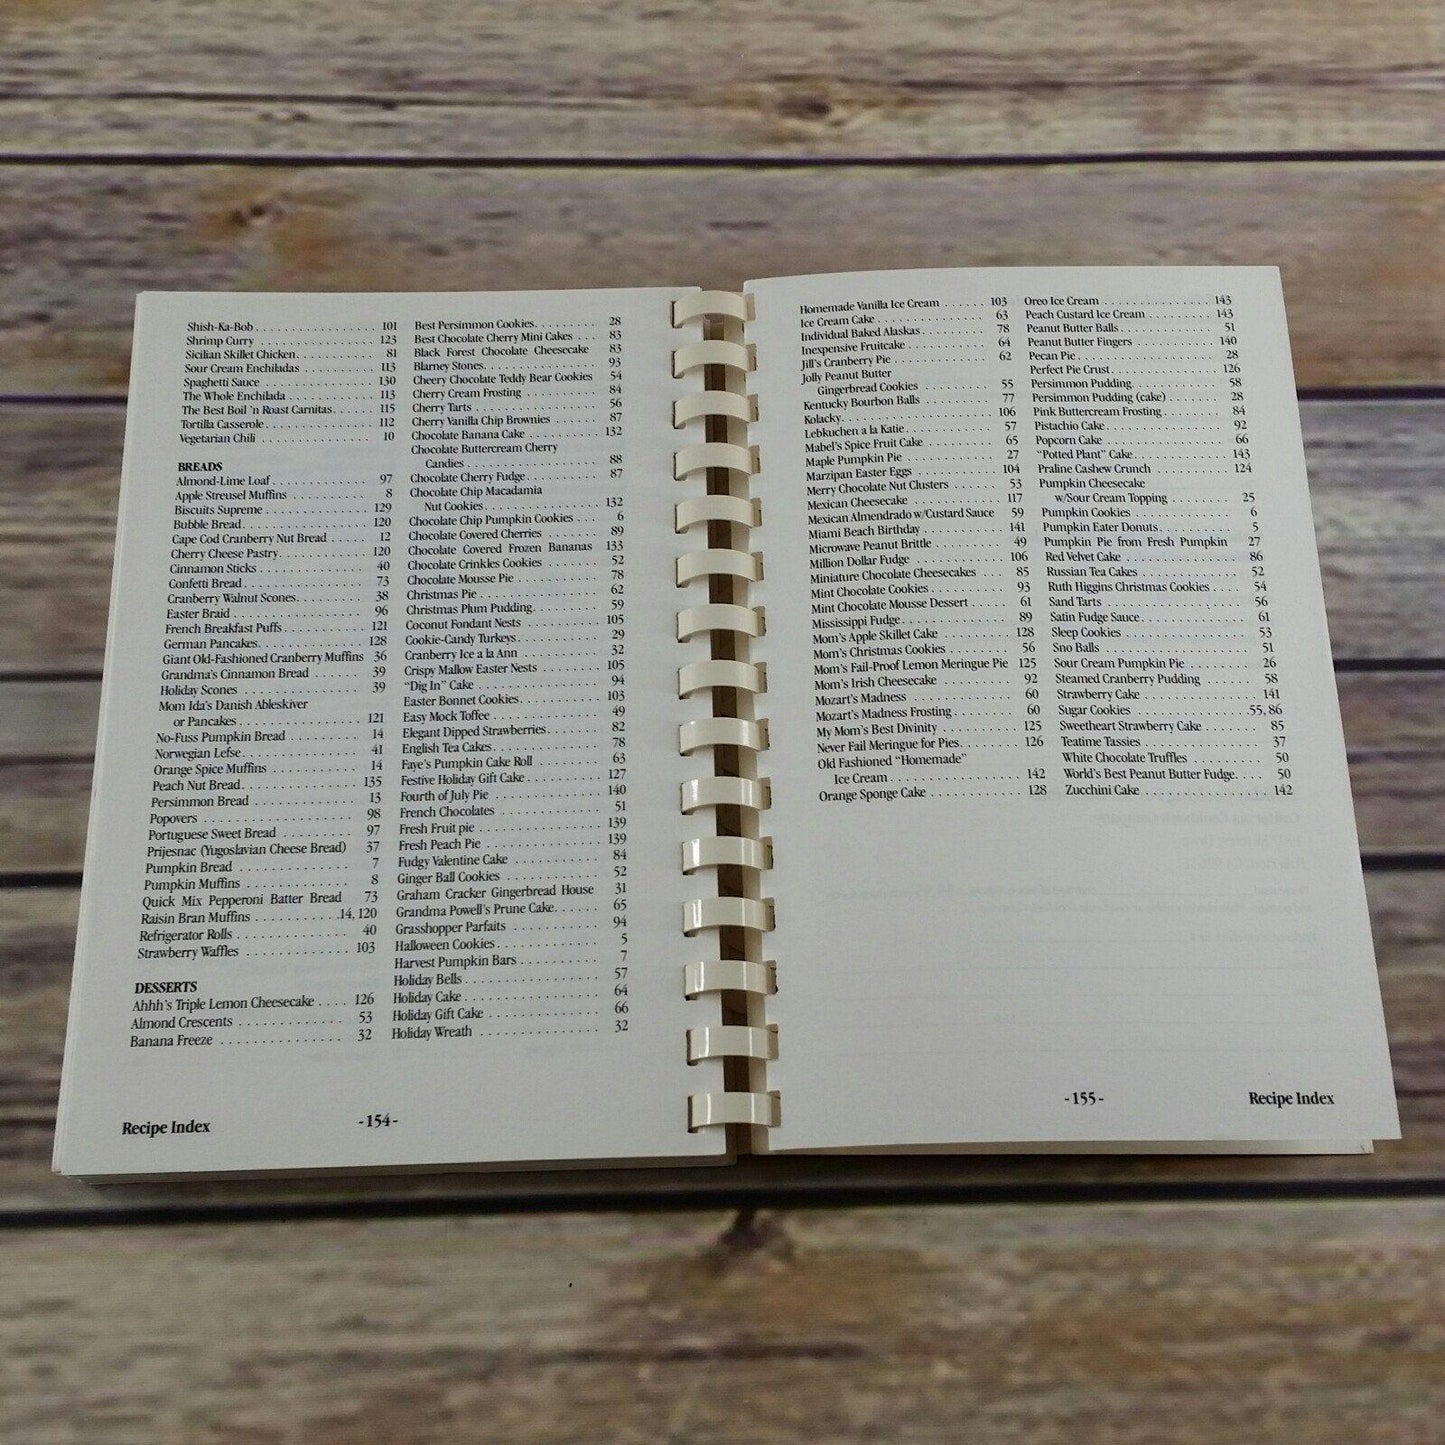 Shish-Ka-Bob . . . . . . . . . . . . . . . . . 101
Shrimp Curry . . . . . . . . . . . . . . . . 123
Sicilian Skillet Chicken. . . . . . . . . . . 81
Sour Cream Enchiladas . . . . . . . . . 113
Spaghetti Sauce . . . . . . . . . . . . . . . 130
The Whole Enchilada . . . . . . . . . . . 113
The Best Boil 'n Roast Carnitas. . . . . . 115
Tortilla Casserole. . . . . . . . . . . . . . . 112
Vegetarian Chili . . . . . . . . . . . . . . . . 10
BREADS
Almond-Lime Loaf . . . . . . . . . . . . . . 97
Apple Streusel Muffins . . . . . . . . . . . 8
Biscuits Supreme . . . . . . . . . . . . . . 129
Bubble Bread . . . . . . . . . . . . . . . . . 120
Cape Cod Cranberry Nut Bread . . . . . 12
Cherry Cheese Pastry. . . . . . . . . . . . 120
Cinnamon Sticks . . . . . . . . . . . . . . . 40
Confetti Bread . . . . . . . . . . . . . . . . . 73
Cranberry Walnut Scones. . . . . . . . . . 38
Easter Braid . . . . . . . . . . . . . . . . . . . 96
French Breakfast Puffs . . . . . . . . . . . 121
German Pancakes. . . . . . . . . . . . . . . 128
Giant Old-Fashioned Cranberry Muffins 36
Grandma's Cinnamon Bread . . . . . . . 39
Holiday Scones . . . . . . . . . . . . . . . . 39
Mom Ida's Danish Ableskiver
or Pancakes . . . . . . . . . . . . . . . . . 121
No-Fuss Pumpkin Bread . . . . . . . . . . 14
Norwegian Lefse. . . . . . . . . . . . . . . . 41
Orange Spice Muffins . . . . . . . . . . . . 14
Peach Nut Bread . . . . . . . . . . . . . . . 135
Persimmon Bread . . . . . . . . . . . . . . 13
Popovers . . . . . . . . . . . . . . . . . . . . 98
Portuguese Sweet Bread . . . . . . . . . 97
Prijesnac (Yugoslavian Cheese Bread) 37
Pumpkin Bread . . . . . . . . . . . . . . . . 7
Pumpkin Muffins . . . . . . . . . . . . . . . 8
Quick Mix Pepperoni Batter Bread 73
Raisin Bran Muffins . . . . . . . . . . . .14, 120
Refrigerator Rolls . . . . . . . . . . . . . . . 40
Strawberry Waffles . . . . . . . . . . . . . 103
DESSERTS
Ahhh's Triple Lemon Cheesecake . . . . 126
Almond Crescents . . . . . . . . . . . . . 53
Banana Freeze . . . . . . . . . . . . . . . . 32
Best Persimmon Cookies. . . . . . . . . 28
Best Chocolate Cherry Mini Cakes . . . 83
Black Forest Chocolate Cheesecake 83
Blarney Stones. . . . . . . . . . . . . . . . 93
Cheery Chocolate Teddy Bear Cookies 54
Cherry Cream Frosting . . . . . . . . . . 84
Cherry Tarts . . . . . . . . . . . . . . . . . . 56
Cherry Vanilla Chip Brownies . . . . . . 87
Chocolate Banana Cake . . . . . . . . . . 132
Chocolate Buttercream Cherry
Candies . . . . . . . . . . . . . . . . . . . 88
Chocolate Cherry Fudge. . . . . . . . . . 87
Chocolate Chip Macadamia
Nut Cookies. . . . . . . . . . . . . . . . . 132
Chocolate Chip Pumpkin Cookies . . . 6
Chocolate Covered Cherries . . . . . . . 89
Chocolate Covered Frozen Bananas 133
Chocolate Crinkles Cookies . . . . . . . 52
Chocolate Mousse Pie . . . . . . . . . . . 78
Christmas Pie . . . . . . . . . . . . . . . . . 62
Christmas Plum Pudding. . . . . . . . . . 59
Coconut Fondant Nests . . . . . . . . . . 105
Cookie-Candy Turkeys. . . . . . . . . . . . 29
Cranberry Ice a la Ann . . . . . . . . . . . 32
Crispy Mallow Easter Nests . . . . . . . . 105
"Dig In" Cake . . . . . . . . . . . . . . . . . 94
Easter Bonnet Cookies. . . . . . . . . . . 103
Easy Mock Toffee . . . . . . . . . . . . . . 49
Elegant Dipped Strawberries. . . . . . . . 82
English Tea Cakes. . . . . . . . . . . . . . . 78
Faye's Pumpkin Cake Roll . . . . . . . . . 63
Festive Holiday Gift Cake . . . . . . . . . . 127
Fourth of July Pie . . . . . . . . . . . . . . 140
French Chocolates . . . . . . . . . . . . . 51
Fresh Fruit pie . . . . . . . . . . . . . . . . 139
Fresh Peach Pie . . . . . . . . . . . . . . . 139
Fudgy Valentine Cake . . . . . . . . . . . 84
Ginger Ball Cookies . . . . . . . . . . . . . 52
Graham Cracker Gingerbread House 31
Grandma Powell's Prune Cake. . . . . . 65
Grasshopper Parfaits . . . . . . . . . . . . 94
Halloween Cookies . . . . . . . . . . . . . 5
Harvest Pumpkin Bars . . . . . . . . . . . 7
Holiday Bells . . . . . . . . . . . . . . . . . . 57
Holiday Cake . . . . . . . . . . . . . . . . . . 64
Holiday Gift Cake . . . . . . . . . . . . . . 66
Holiday Wreath . . . . . . . . . . . . . . . 32
Recipe Index
-154-
Homemade Vanilla Ice Cream . . . . . . 103
Ice Cream Cake . . . . . . . . . . . . . . . . 63
Individual Baked Alaskas . . . . . . . . . 78
Inexpensive Fruitcake . . . . . . . . . . . 64
Jill's Cranberry Pie . . . . . . . . . . . . . . 62
Jolly Peanut Butter
Gingerbread Cookies . . . . . . . . . . 55
Kentucky Bourbon Balls . . . . . . . . . 77
Kolacky. . . . . . . . . . . . . . . . . . . . . . 106
Lebkuchen a la Katie . . . . . . . . . . . . 57
Mabel's Spice Fruit Cake . . . . . . . . . 65
Maple Pumpkin Pie . . . . . . . . . . . . . 27
Marzipan Easter Eggs . . . . . . . . . . . 104
Merry Chocolate Nut Clusters . . . . . . 53
Mexican Cheesecake . . . . . . . . . . . . 117
Mexican Almendrado w/Custard Sauce 59
Miami Beach Birthday . . . . . . . . . . . 141
Microwave Peanut Brittle . . . . . . . . . 49
Million Dollar Fudge . . . . . . . . . . . . 106
Miniature Chocolate Cheesecakes . . . 85
Mint Chocolate Cookies . . . . . . . . . . 93
Mint Chocolate Mousse Dessert . . . . . 61
Mississippi Fudge. . . . . . . . . . . . . . . 89
Mom's Apple Skillet Cake . . . . . . . . . 128
Mom's Christmas Cookies . . . . . . . . . 56
Mom's Fail-Proof Lemon Meringue Pie 125
Mom's Irish Cheesecake . . . . . . . . . . 92
Mozart's Madness . . . . . . . . . . . . . . 60
Mozart's Madness Frosting . . . . . . . . 60
My Mom's Best Divinity . . . . . . . . . . 125
Never Fail Meringue for Pies. . . . . . . . 126
Old Fashioned "Homemade"
Ice Cream . . . . . . . . . . . . . . . . . . 142
Orange Sponge Cake . . . . . . . . . . . . 128
Oreo Ice Cream . . . . . . . . . . . . . . . 143
Peach Custard Ice Cream . . . . . . . . . 143
Peanut Butter Balls . . . . . . . . . . . . . 51
Peanut Butter Fingers . . . . . . . . . . . 140
Pecan Pie . . . . . . . . . . . . . . . . . . . . 28
Perfect Pie Crust. . . . . . . . . . . . . . . . 126
Persimmon Pudding. . . . . . . . . . . . . 58
Persimmon Pudding (cake) . . . . . . . . 28
Pink Buttercream Frosting . . . . . . . . . 84
Pistachio Cake . . . . . . . . . . . . . . . . 92
Popcorn Cake . . . . . . . . . . . . . . . . . 66
"Potted Plant" Cake . . . . . . . . . . . . . 143
Praline Cashew Crunch . . . . . . . . . . 124
Pumpkin Cheesecake
w/Sour Cream Topping . . . . . . . . 25
Pumpkin Cookies . . . . . . . . . . . . . . 6
Pumpkin Eater Donuts. . . . . . . . . . . 5
Pumpkin Pie from Fresh Pumpkin 27
Red Velvet Cake . . . . . . . . . . . . . . . 86
Russian Tea Cakes . . . . . . . . . . . . . . 52
Ruth Higgins Christmas Cookies . . . . 54
Sand Tarts . . . . . . . . . . . . . . . . . . . 56
Satin Fudge Sauce . . . . . . . . . . . . . . 61
Sleep Cookies . . . . . . . . . . . . . . . . . 53
Sno Balls . . . . . . . . . . . . . . . . . . . . 51
Sour Cream Pumpkin Pie . . . . . . . . . 26
Steamed Cranberry Pudding . . . . . . . 58
Strawberry Cake . . . . . . . . . . . . . . . 141
Sugar Cookies . . . . . . . . . . . . . . .55, 86
Sweetheart Strawberry Cake . . . . . . . 85
Teatime Tassies . . . . . . . . . . . . . . . . 37
White Chocolate Truffles . . . . . . . . . 50
World's Best Peanut Butter Fudge. . . . 50
Zucchini Cake . . . . . . . . . . . . . . . . 142
-155-
Recipe Index